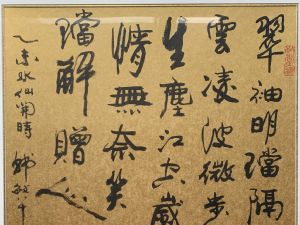 翠袖明璫隔
雲凌波微步
生塵江空歲
情無奈笑
璫解贈人
乙未水仙開時